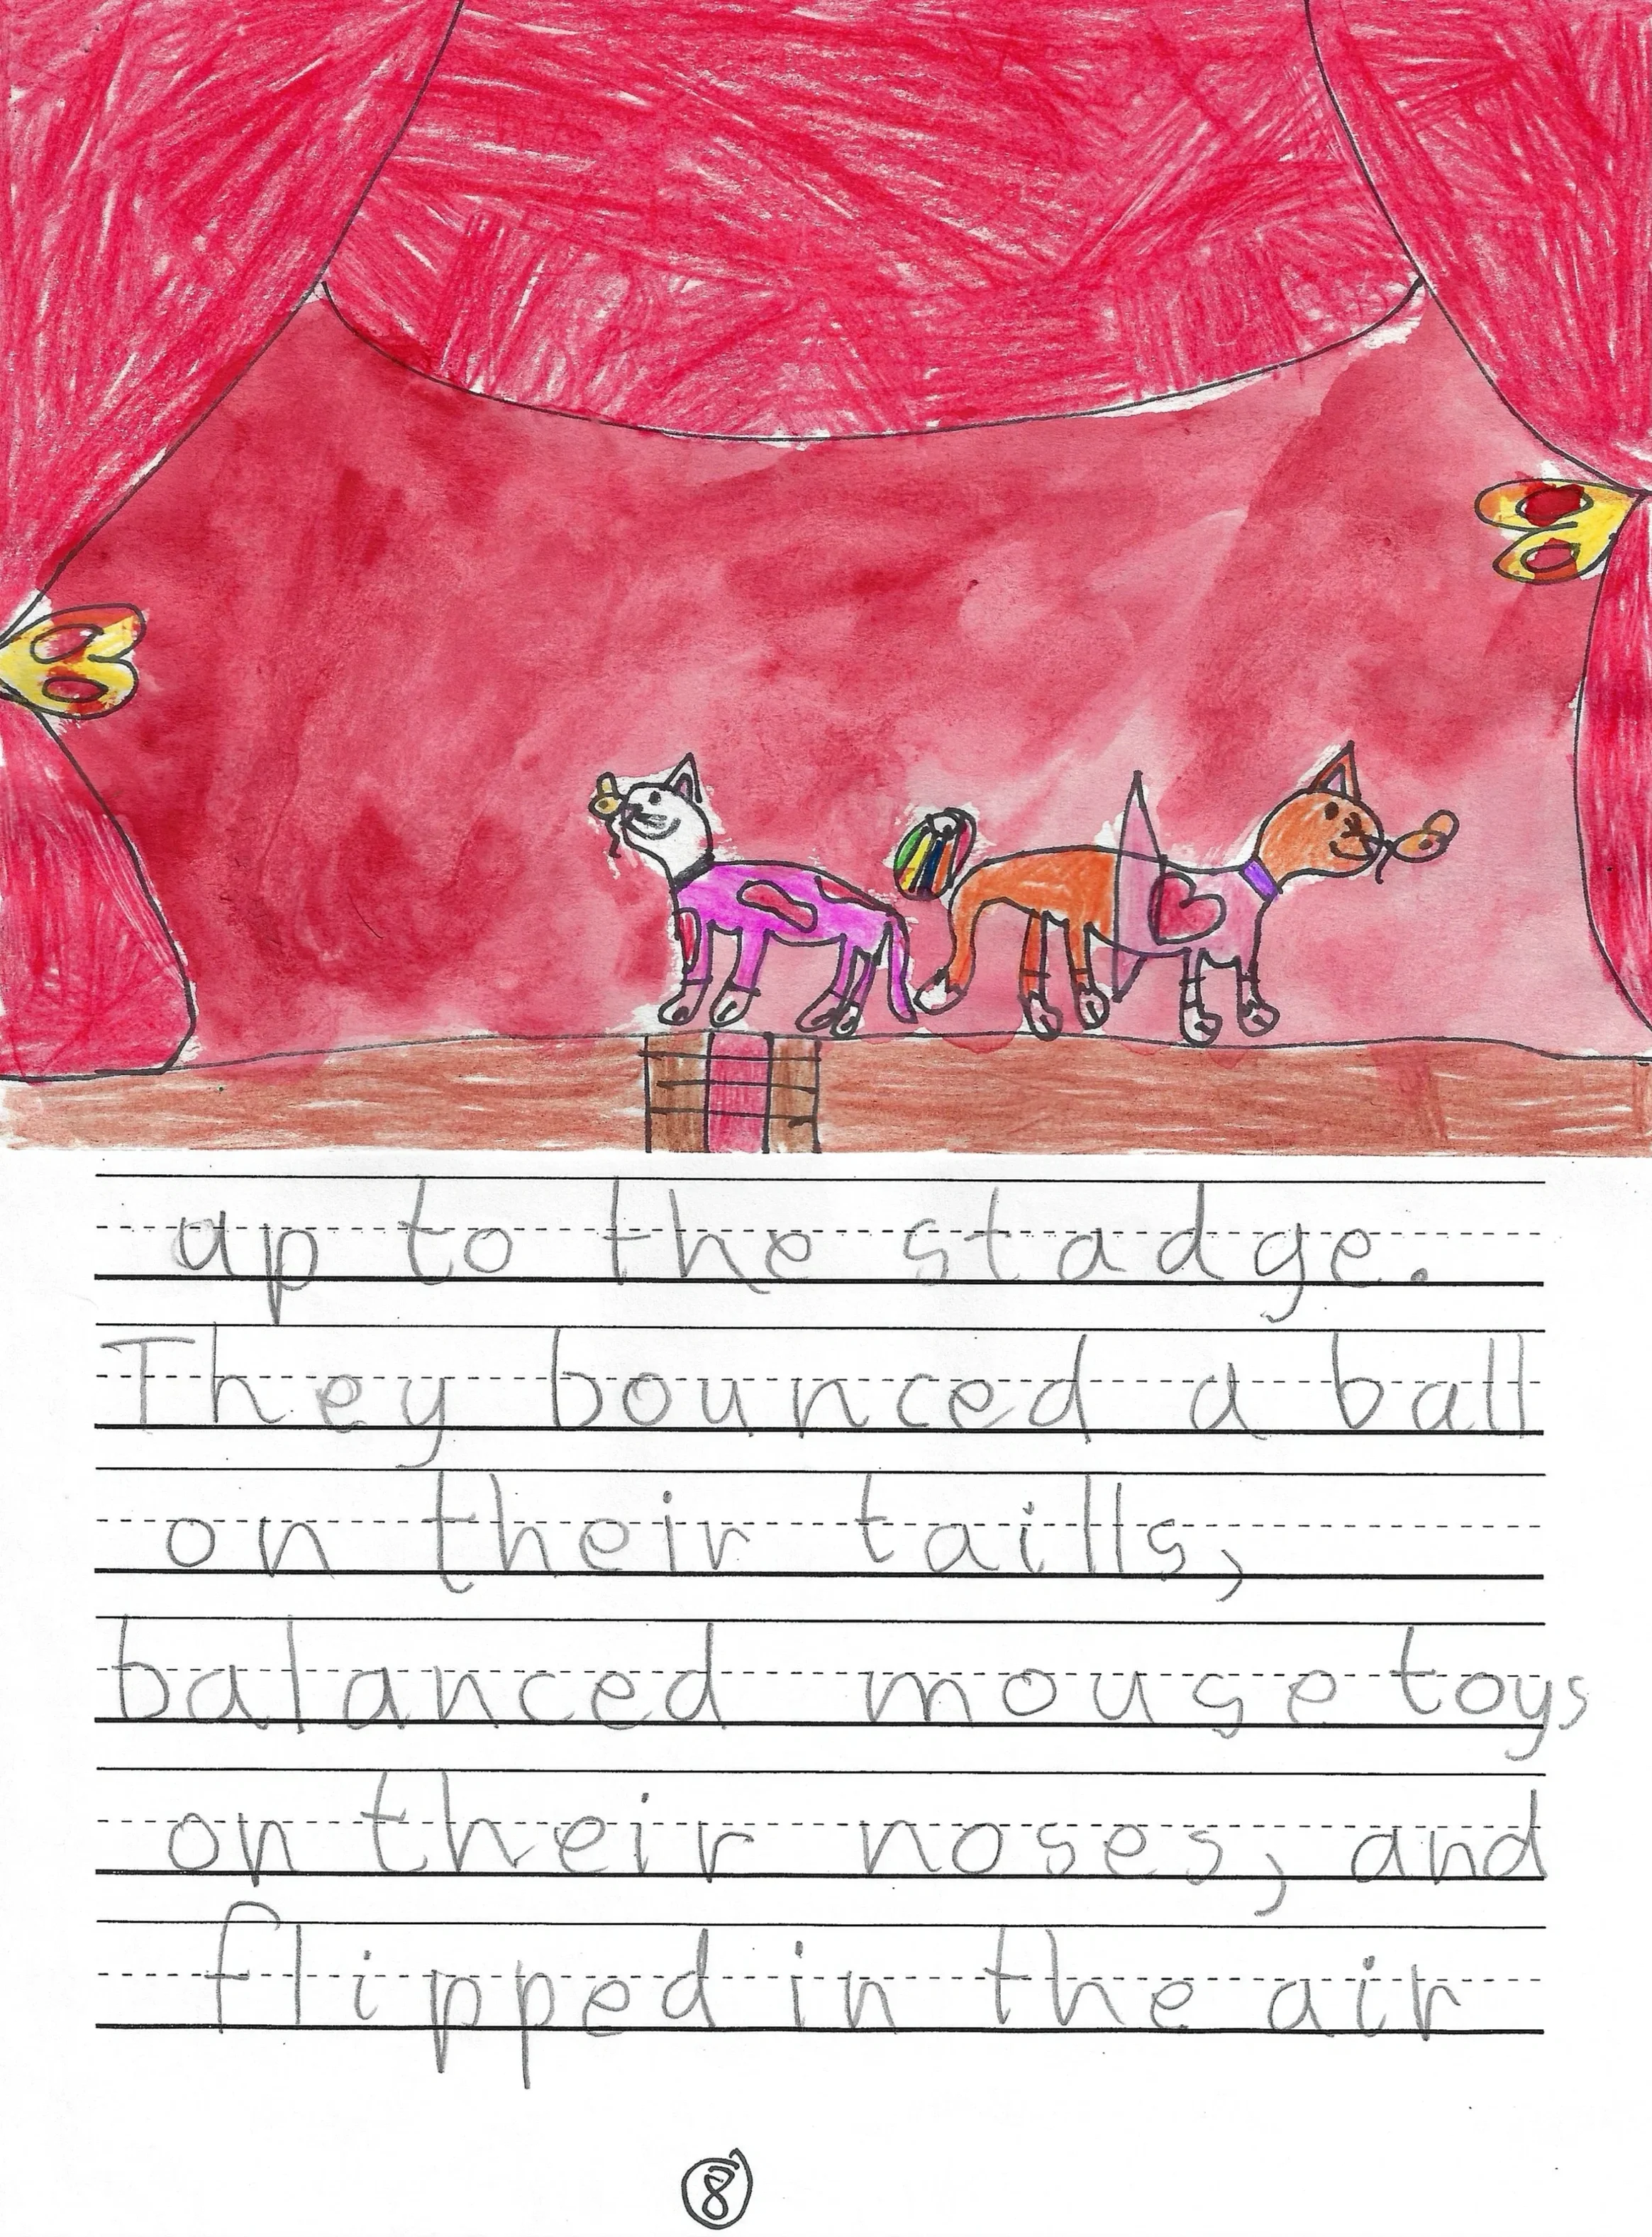 up to the stadge.
They bounced a ball
on their taills,
balanced mouse toys
on their noses, and
flipped in the air
8